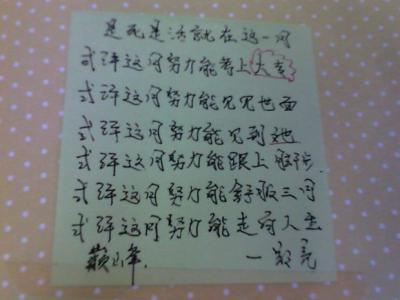 是死是活就在这一周
或许这周努力能考上大专
或许这周努力能见见世面
或许这周努力能见到她
或许这周努力能跟上脚步
或许这周努力能舒服三周
或许这周努力能走向人生
巅峰.
—亮